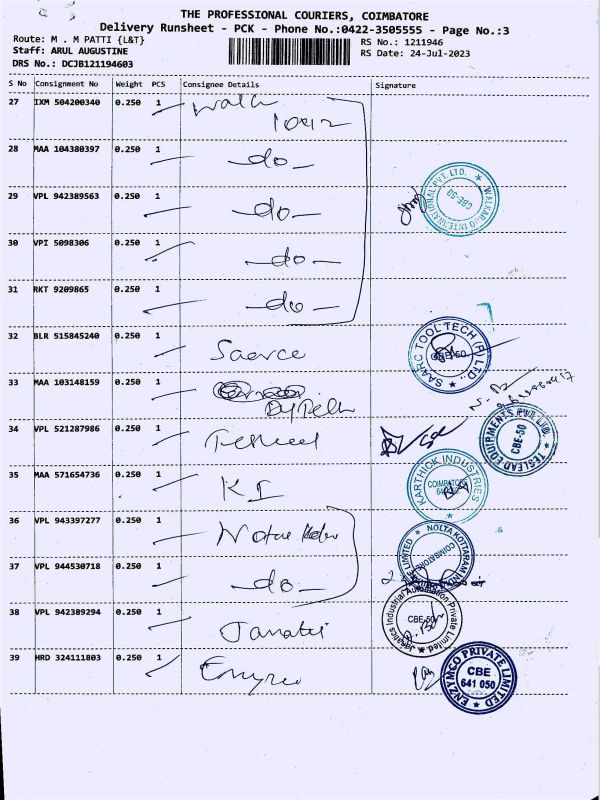 THE PROFESSIONAL COURIERS, COIMBATORE
Delivery Runsheet - PCK - Phone No.:0422-3505555 - Page No.:3
Route: M . M PATTI {L&T}
Staff: ARUL AUGUSTINE
DRS No.: DCJB121194603
RS No.: 1211946
RS Date: 24-Jul-2023
S No Consignment No Weight PCS Consignee Details Signature
27 IXM 504200340 0.250 1
28 MAA 104380397 0.250 1 -do-
29 VPL 942389563 0.250 1 -do-
WALKARGO INTERNATIONAL PVT. LTD. CBE-50
30 VPI 5098306 0.250 1 -do-
31 RKT 9209865 0.250 1 -do-
32 BLR 515845240 0.250 1
SAARC TOOL TECH (P) LTD. CBE-50
33 MAA 103148159 0.250 1
34 VPL 521287986 0.250 1
TESLEAD EQUIPMENTS PVT. LTD. CBE-50
35 MAA 571654736 0.250 1 K I
KARTHICK INDUSTRIES COIMBATORE
36 VPL 943397277 0.250 1
COIMBATORE
37 VPL 944530718 0.250 1 -do-
38 VPL 942389294 0.250 1
Janatics Industrial Automation Private Limited CBE-50
39 HRD 324111803 0.250 1
ENZYMCO PRIVATE LIMITED CBE 641 050